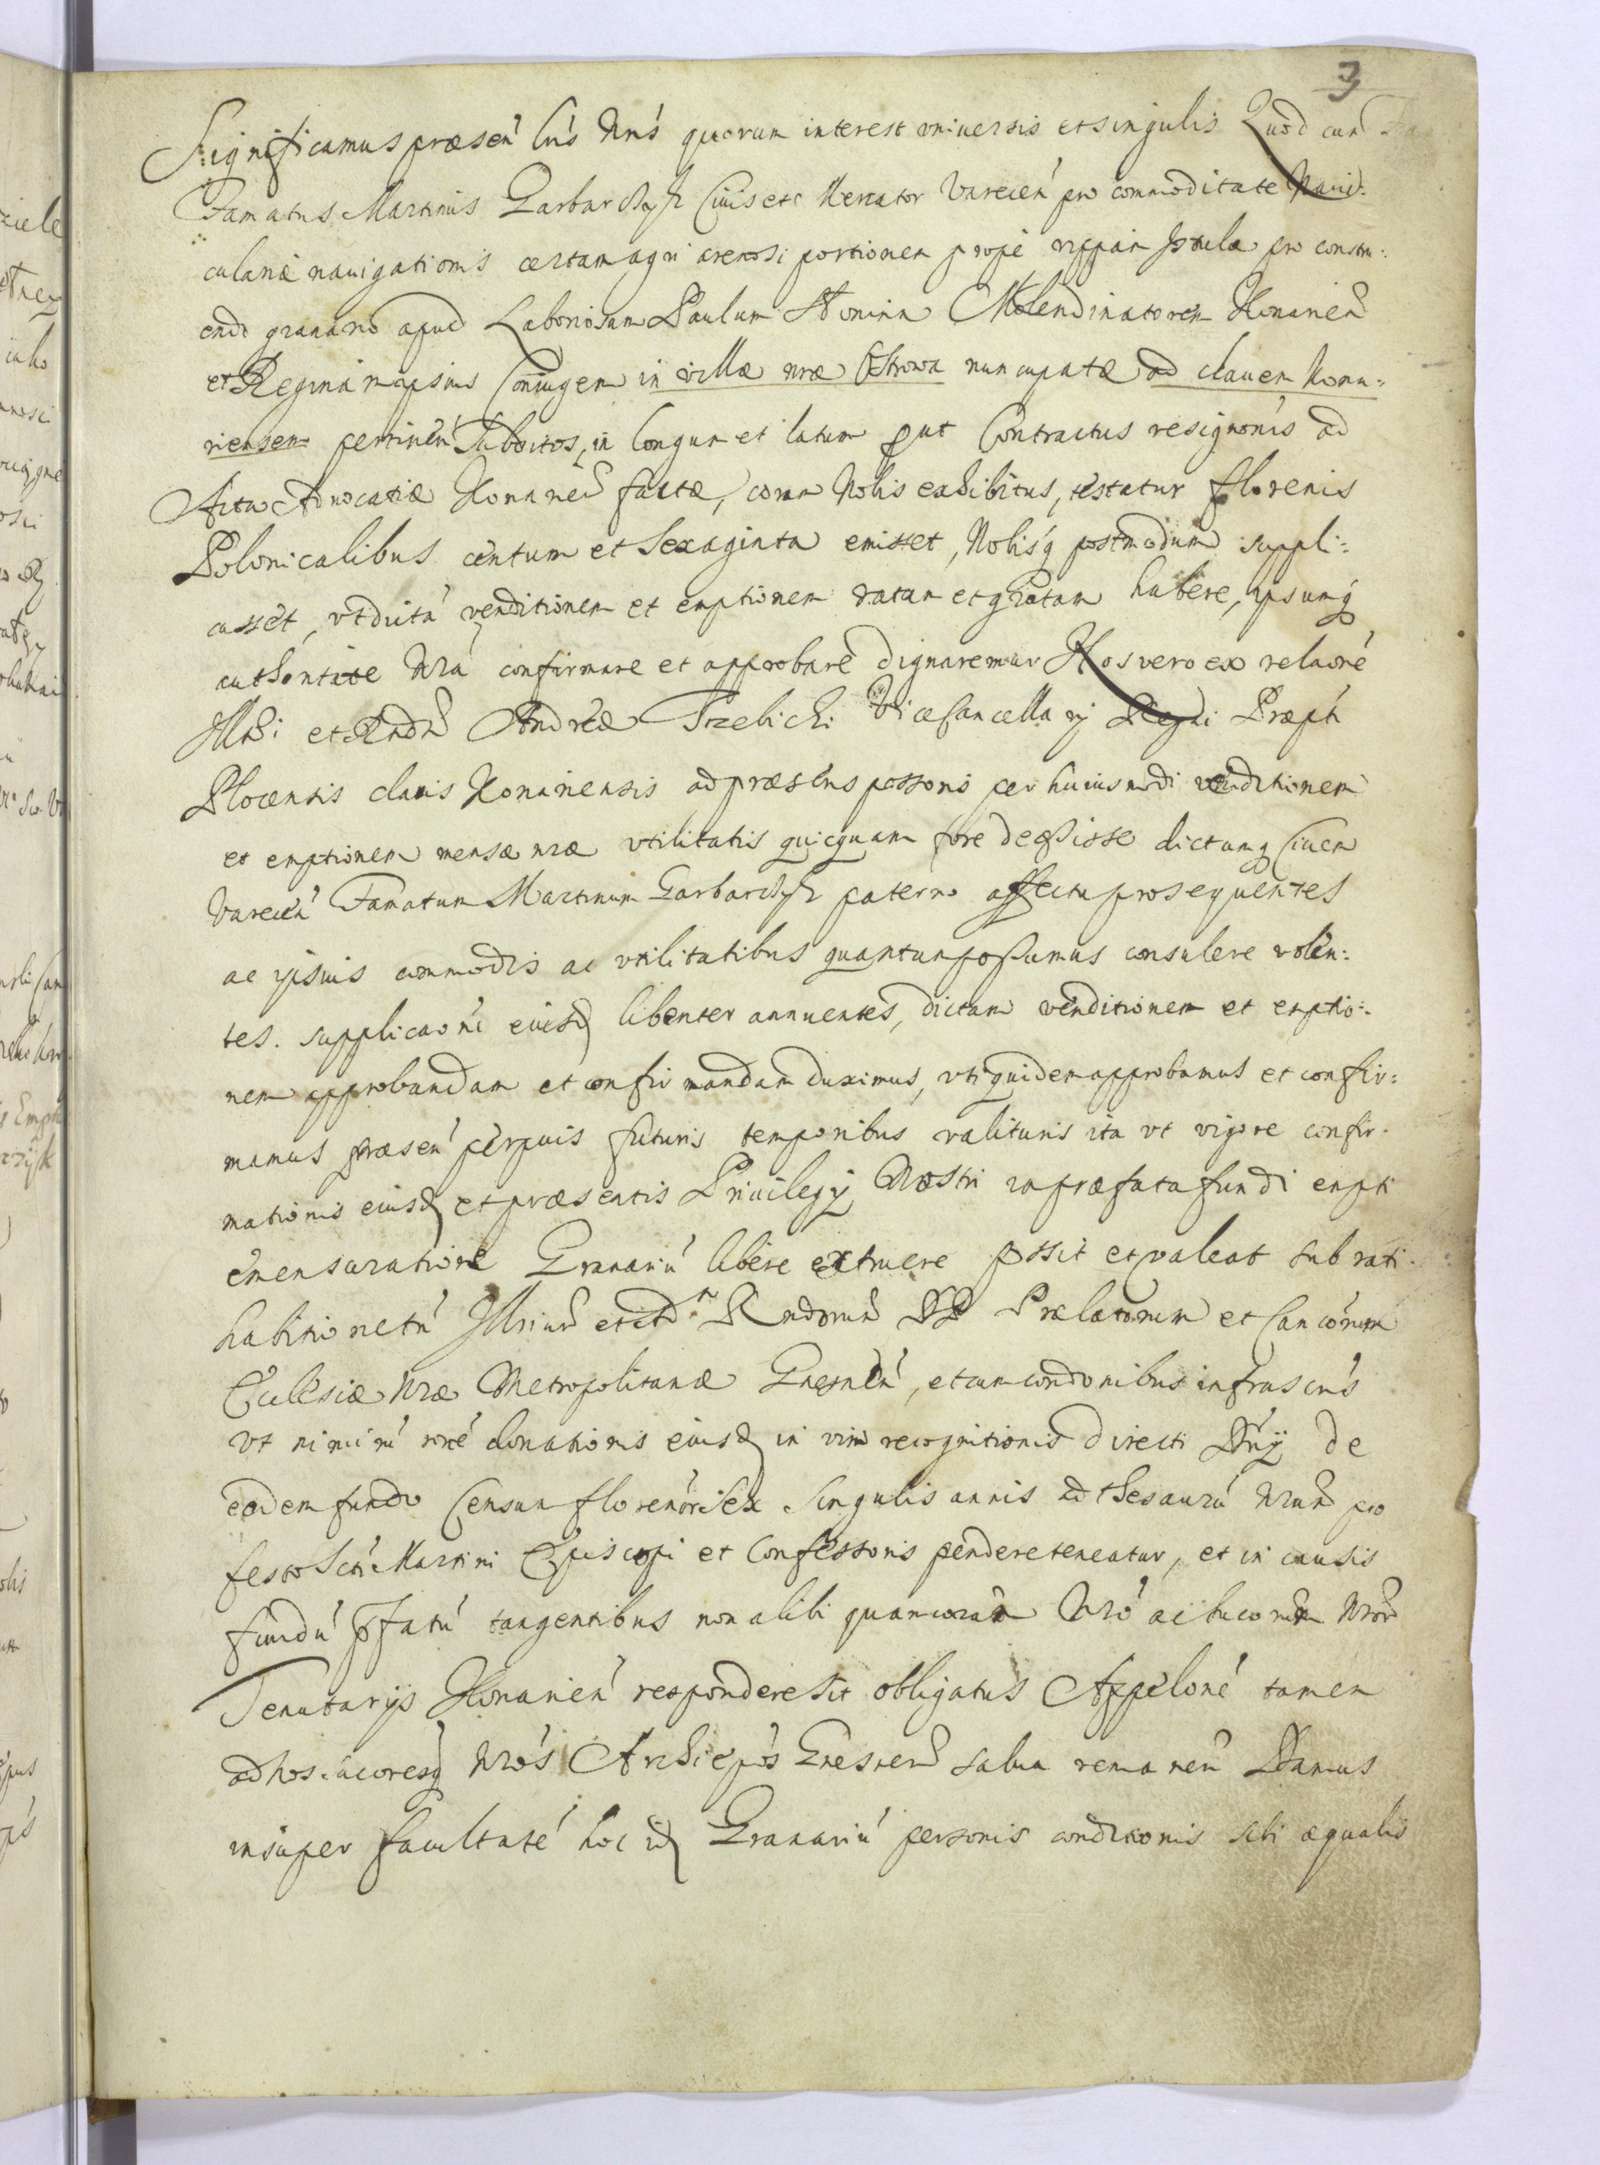 3
Significamus præsen͂ lrīs Nrīs quorum interest vniuersis et singulis Quod cum
Famatus Martinus Garbarchyk Ciuis etc Mercator Varecen͂ pro commoditate Nauid:
culariæ nauigationis certam agri arenosi portionem propè rippam Istulæ pro constru:
endo granario apud Laboriosam Paulum Molendinatorem Konarien͂
et Reginam ipsius Coniugem in villæ nræ Ostrowa nuncupatæ ad clauem Kona=
riensem pertinen͂ Subditos, in longum et latum put Contractus resignōnis ad
Acta Aduocatiæ Konarien͂ factæ, coram Nobis exhibitus, testatur florenis
Polonicalibus centum et Sexaginta emisset, Nobisq postmodum suppli:
casset, vt dictā venditionem et emptionem ratam et gratam habere, ipsumq
authoritate Nrā confirmare et approbare dignaremur Nos vero ex relaōne
Illris et Rndi Andreæ Trzebicki ViceCancellarij Regni Præpti
Plocensis clauis Konariensis ad præsens possoris per huiusmodi venditionem
et emptionem mensæ nræ vtilitatis quicquam fore decessisse dictumq Ciuem
Varecen͂ Famatum Martinum Garbarchyk paterno affectu prosequentes
ac ipsius commodis ac vtilitatibus quantum possumus consulere volen:
tes. supplicaōni eiusd libenter annuentes, dictam venditionem et emptio:
nem approbandam et confirmandam duximus, vti quidem approbamus et confir:
mamus præsen͂ perpuis futuris temporibus valituris ita vt vigore confir-
mationis eiusd et præsentis Priuilegij Nostri in præfata fundi empti
emensuratione Granariū libere extruere possit et valeat sub rati-
habitione tn͂ Illrium et Rndorum DD Prælatorum et Cancorum
Ecclesiæ Nræ Metropolitanæ Gnesnen͂, et cum condonibus infrascris
vt nimirū rōne donationis eiusd in vim recognitionis directi Dn͂ij de
eodem fundo Censum florenōr Sex singulis annis ad thesaurū Nrum pro
festo Scti Martini Episcopi et Confessoris pendere teneatur, et in causis
fundū pfatū tangentibus non alibi quam coram Nrō ac Nror
Tenutarijs Konarien͂ respondere sit obligatus Appelōne tamen
ad nos Nros Archiepōs Gnesnen͂ salua remanen͂ Damus
insuper facultatē hoc id Granariū personis condicionis sibi æqualis